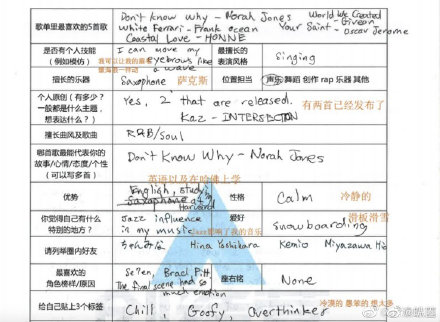 歌单里最喜欢的5首歌
Don't know why - Norah Jones World We Created
White Ferrari - Frank Ocean Your Saint - Giveon
Coastal Love - HONNE Oscar Jerome
是否有个人技能
(例如模仿)
I can move my
eyebrows like
a wave
我可以让我的眉毛
像海浪一样动
最擅长的
表演风格
Singing
擅长的乐器
Saxophone 萨克斯
位置担当
声乐 舞蹈 创作 rap 乐器 其他
个人原创(有多少?
一般都是什么主题,
想表达什么?)
Yes, 2 that are released.
Kaz - INTERSECTION
有两首已经发布了
擅长曲风及歌曲
R&B/Soul
哪首歌最能代表你的
故事/心情/态度/个性
(可以写多首)
Don't Know Why - Norah Jones
英语以及在哈佛上学
优势
English, studying
Saxophone at
Harvard
性格
Calm 冷静的
你觉得自己有什么
特别的地方?
Jazz influence
in my music
Jazz影响了我的音乐
爱好
snowboarding
滑板滑雪
请列举圈内好友
Hina Yoshihara Kemio Miyazawa Hio
最喜欢的
角色榜样/原因
Se7en, Brad Pitt
The final scene had so
much emotion
座右铭
None
给自己贴上3个标签
Chill, Goofy, Overthinker
冷漠的 愚笨的 想太多